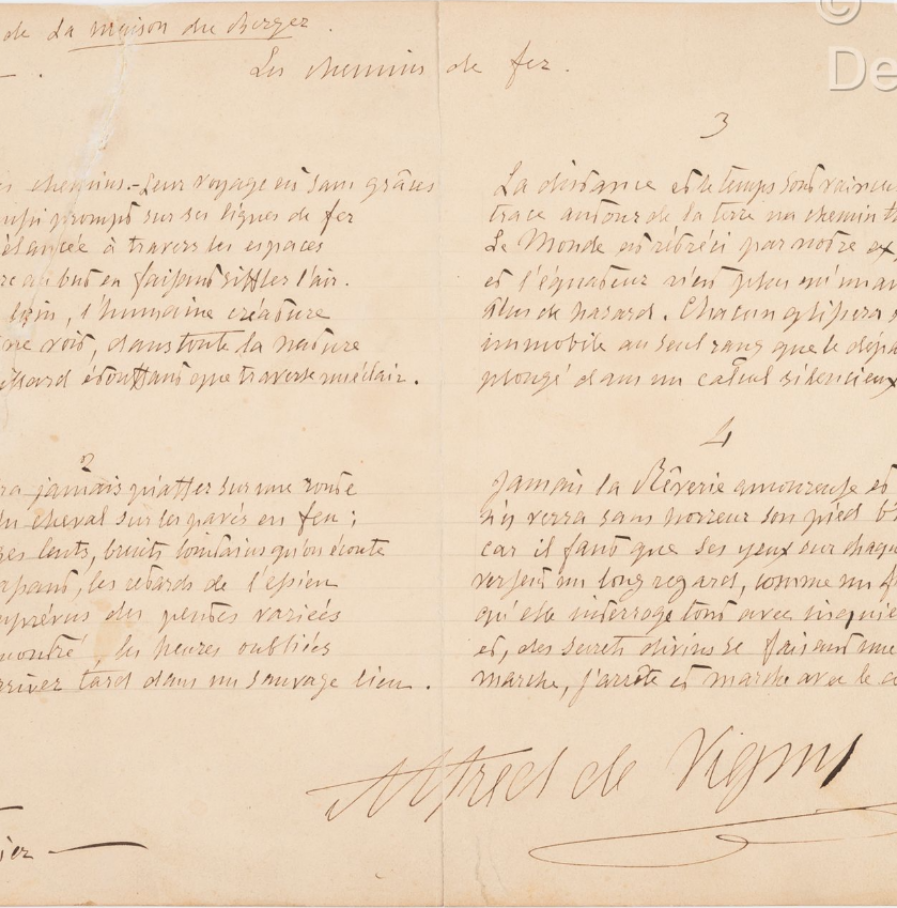 de La maison du Berger.
Les chemins de fer.
chemins. - Leur voyage est sans grâces
aussi prompt sur ses lignes de fer
élancée à travers les espaces
rc au but en faisant siffler l'air.
loin, l'humaine créature
ne voit, dans toute la nature
illard étouffant que traverse un éclair.
2
ra jamais piaffer sur une route
du cheval sur les pavés en feu ;
ges lents, bruits lointains qu'on écoute
passant, les retards de l'essieu
imprévus des pentes variées
contré, les heures oubliées
rriver tard dans un sauvage lieu.
ier
3
La distance et le temps sont vaincu
trace autour de la terre un chemin t
Le Monde est rétréci par notre ex
et l'équateur n'est plus qu'un an
Plus de hasard. Chacun glissera s
immobile au seul rang que le dépa
plongé dans un calcul silencieux
4
Jamais la Rêverie amoureuse et
n'y verra sans horreur son pied b
car il faut que ses yeux sur chaqu
versent un long regard, comme un f
qu'elle interroge tout avec inquié
et, des secrets divins se faisant une
marche, s'arrête et marche avec le c
Alfred de Vigny
© De